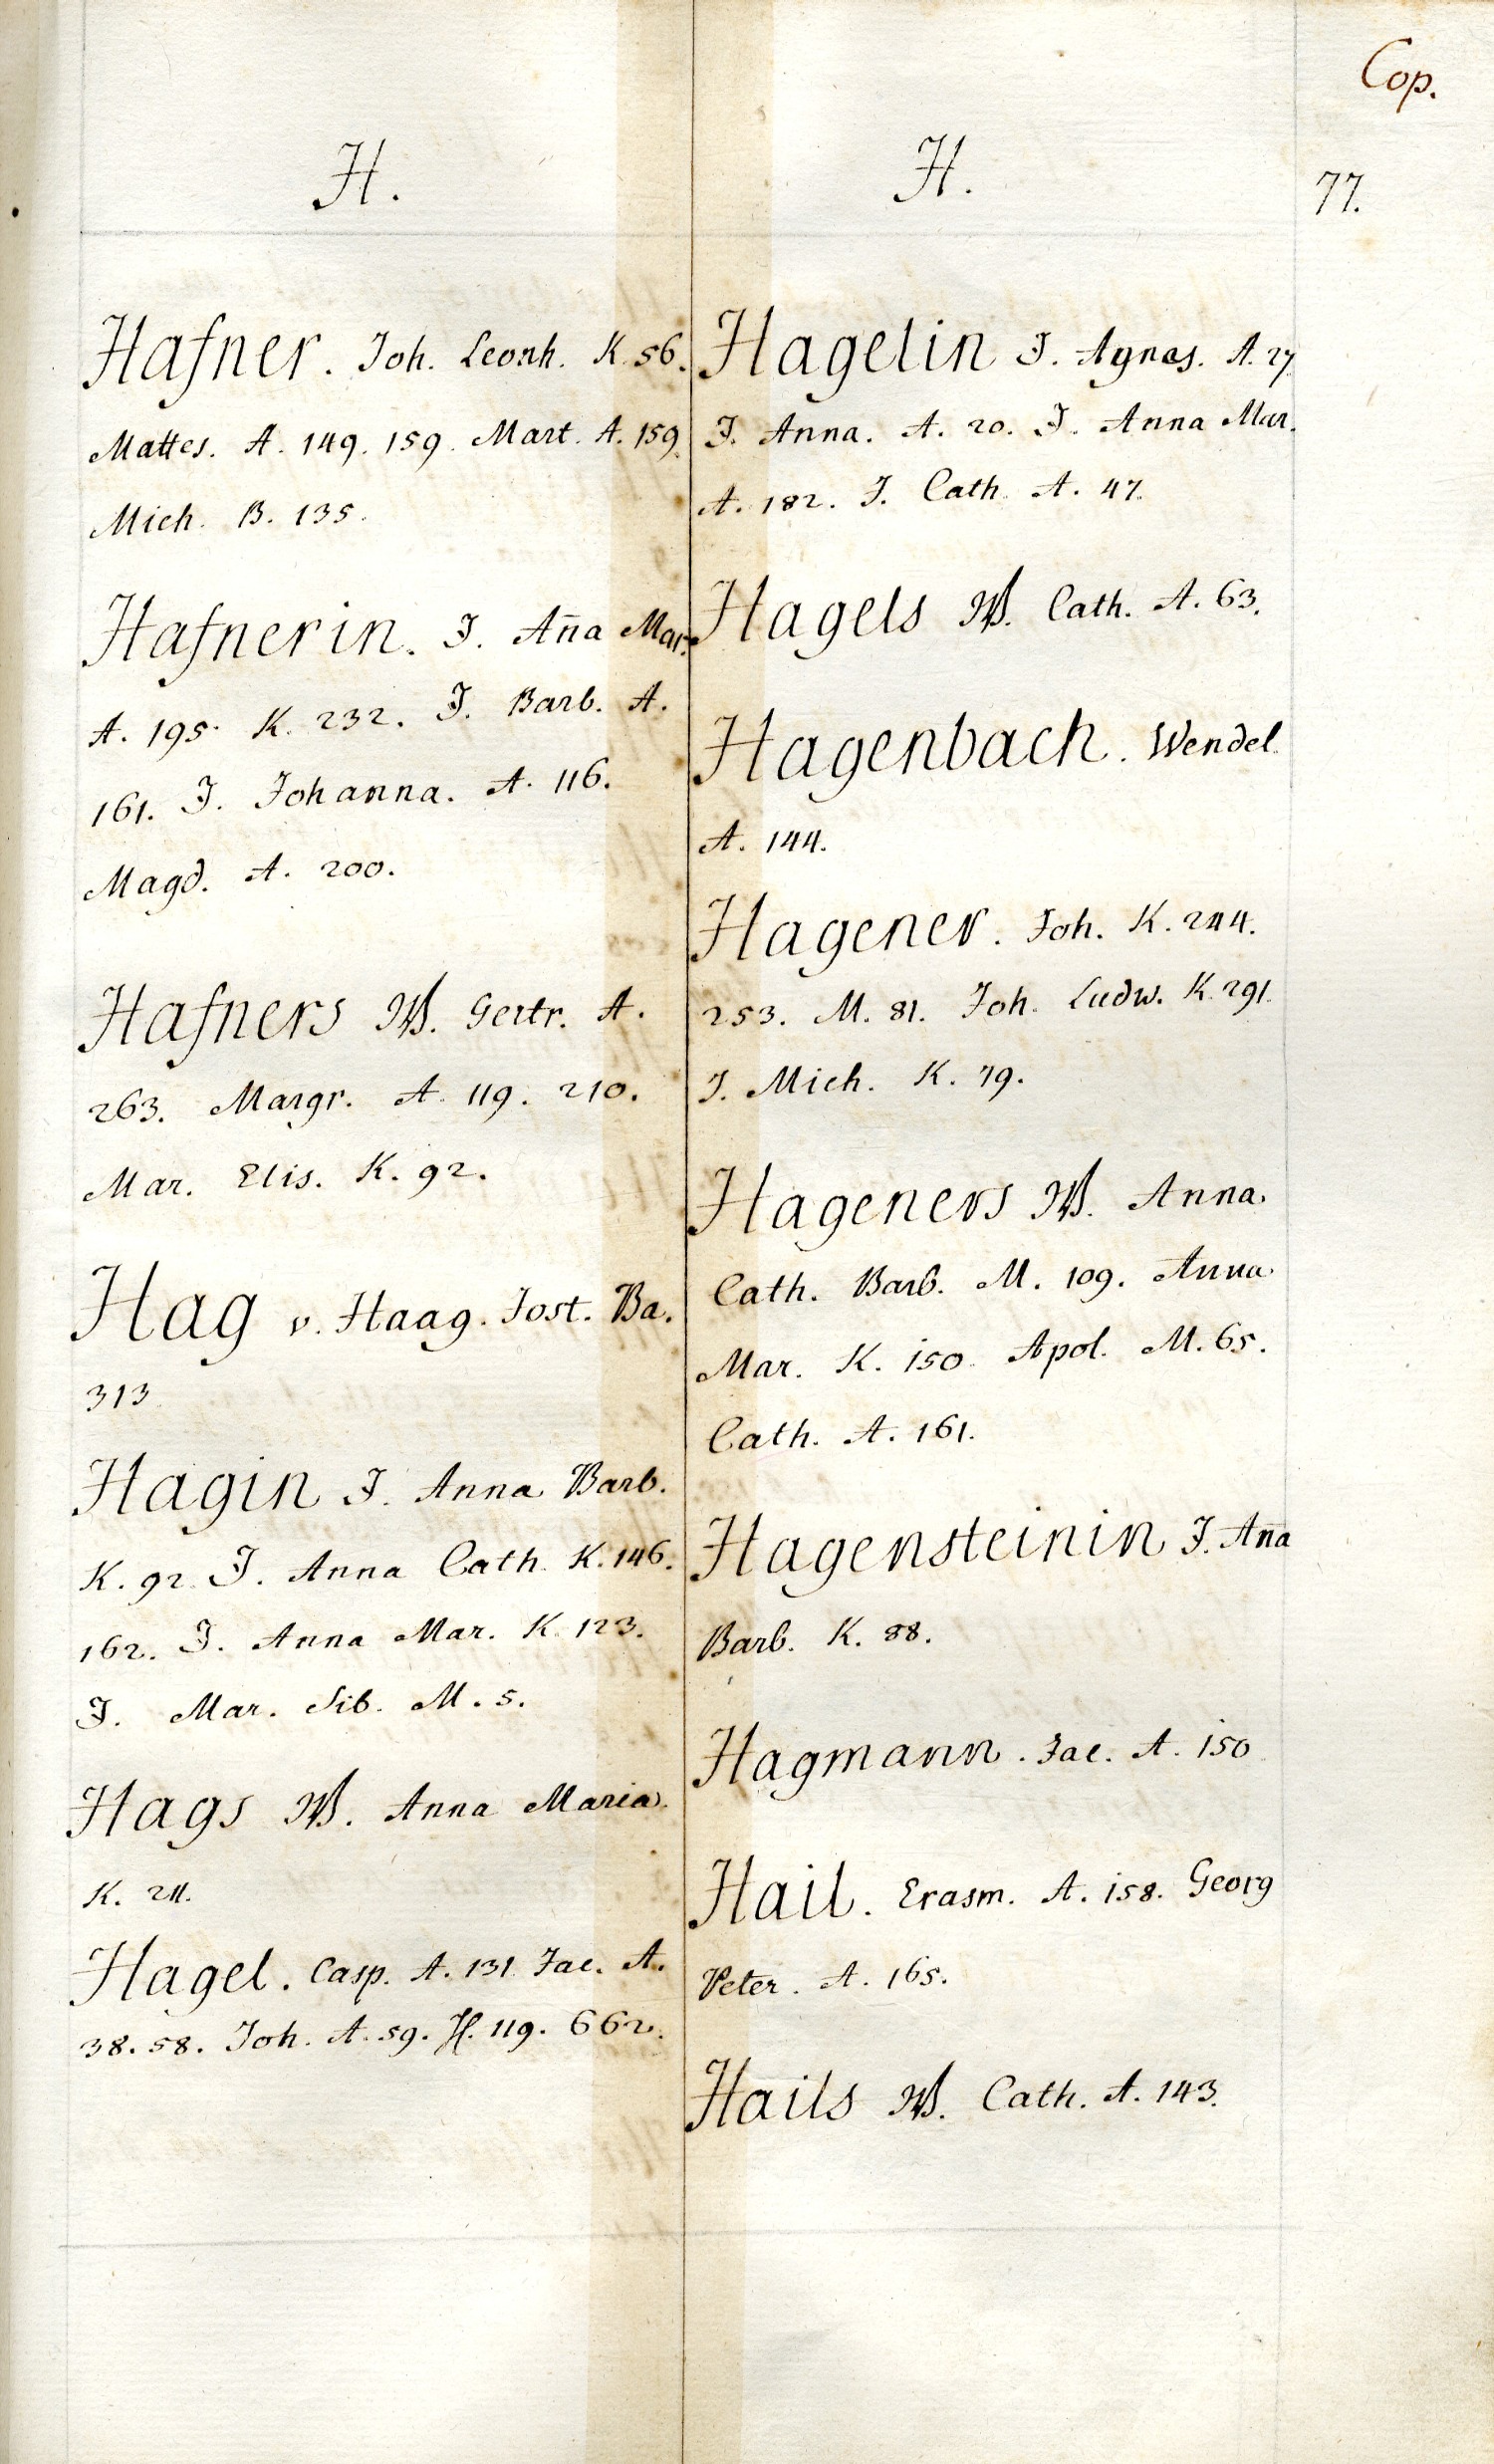 Cop.
77.
H.
Hafner. Joh. Leonh. K. 56.
Mattes. A. 149. 159. Mart. A. 159.
Mich. B. 135.
Hafnerin. J. Aña Mar.
A. 195. K. 232. J. Barb. A.
161. J. Johanna. A. 116.
Magd. A. 200.
Hafners W. Gertr. A.
263. Margr. A. 119. 210.
Mar. Elis. K. 92.
Hag v. Haag. Jost. Ba.
313.
Hagin J. Anna Barb.
K. 92. J. Anna Cath. K. 146.
162. J. Anna Mar. K. 123.
J. Mar. Sib. M. 5.
Hags W. Anna Maria.
K. 211.
Hagel. Casp. A. 131. Jac. A.
38. 58. Joh. A. 59. H. 119. 662.
H.
Hagelin J. Agnes. A. 27.
J. Anna. A. 20. J. Anna Mar.
A. 182. J. Cath. A. 47.
Hagels W. Cath. A. 63.
Hagenbach. Wendel.
A. 144.
Hagener. Joh. K. 244.
253. M. 81. Joh. Ludw. K. 291.
J. Mich. K. 79.
Hageners W. Anna.
Cath. Barb. M. 109. Anna.
Mar. K. 150. Apol. M. 65.
Cath. A. 161.
Hagensteinin J. Aña
Barb. K. 88.
Hagmann. Jac. A. 150.
Hail. Erasm. A. 158. Georg
Peter. A. 165.
Hails W. Cath. A. 143.